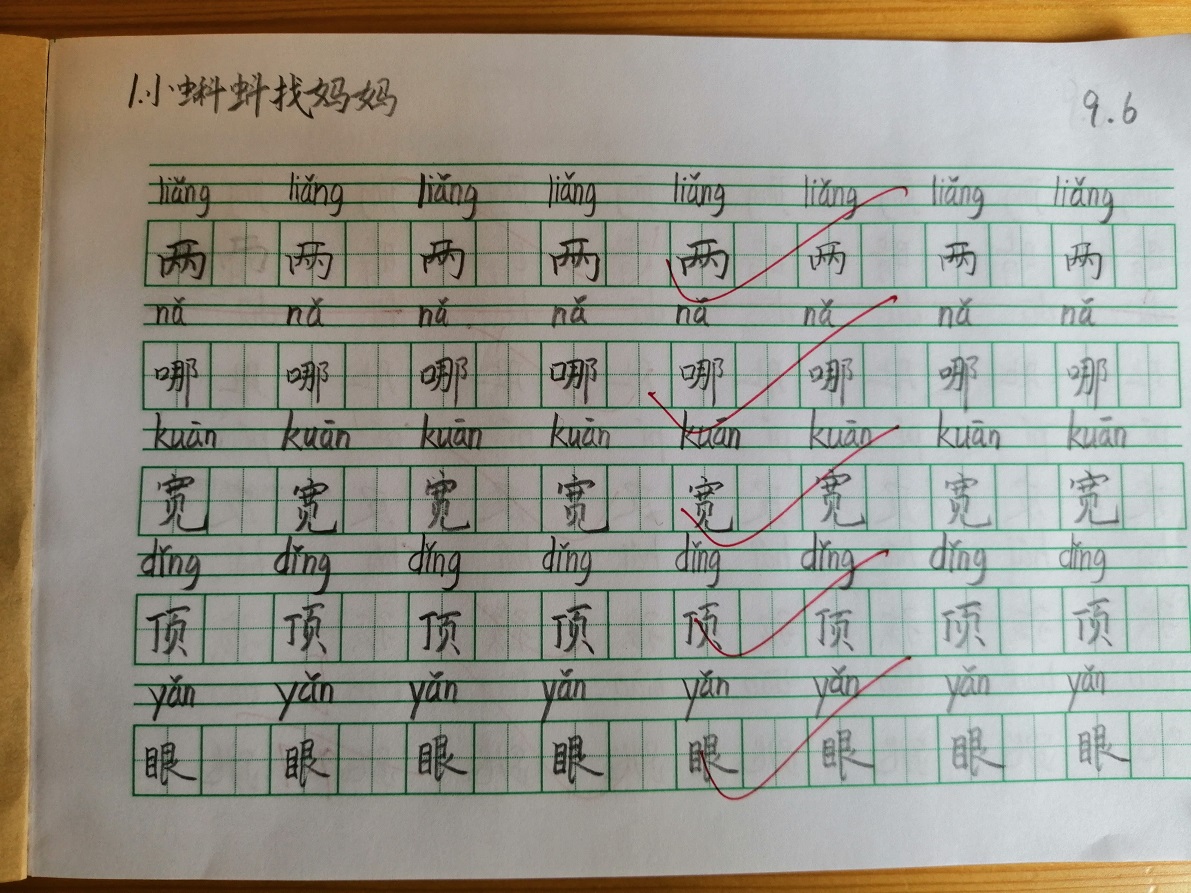 1.小蝌蚪找妈妈 9.6
liǎng liǎng liǎng liǎng liǎng liǎng liǎng liǎng
两 两 两 两 两 两 两 两
nǎ nǎ nǎ nǎ nǎ nǎ nǎ nǎ
哪 哪 哪 哪 哪 哪 哪 哪
kuān kuān kuān kuān kuān kuān kuān kuān
宽 宽 宽 宽 宽 宽 宽 宽
dǐng dǐng dǐng dǐng dǐng dǐng dǐng dǐng
顶 顶 顶 顶 顶 顶 顶 顶
yǎn yǎn yǎn yǎn yǎn yǎn yǎn yǎn
眼 眼 眼 眼 眼 眼 眼 眼